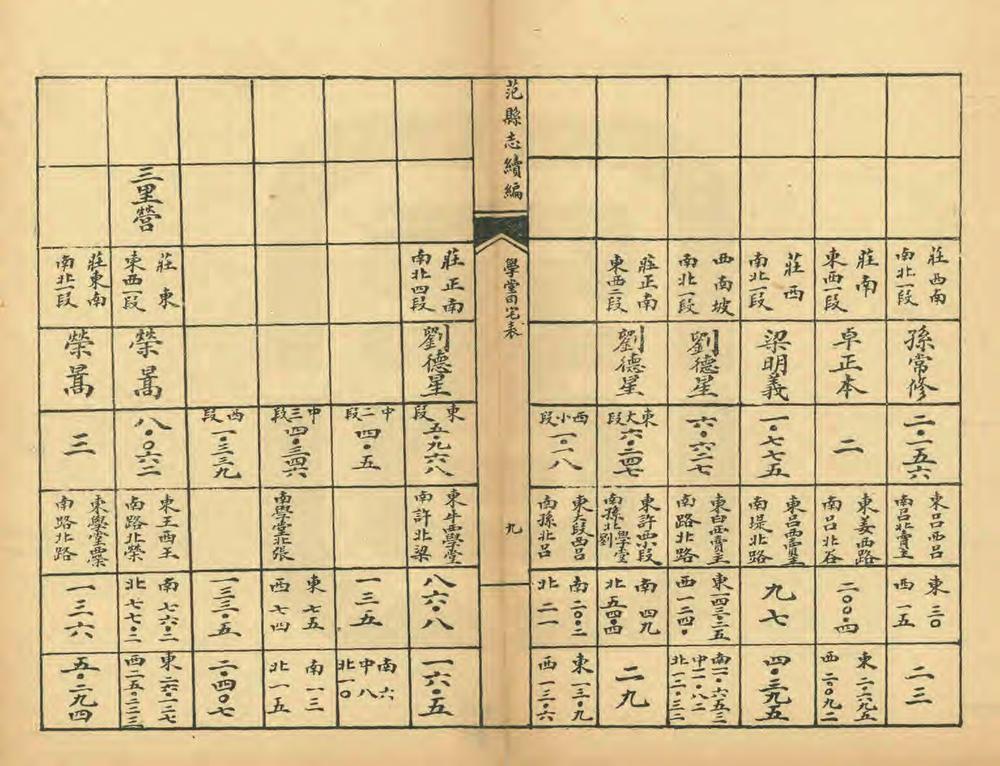 莊西南
南北一段
孫常修
二·一五六
東呂西呂
南呂北賣主
東三〇
西一五
二三
莊南
東西一段
卓正本
二
東姜西路
南呂北谷
二〇〇·四
東二·六九五
西二·〇九二
莊西
南北一段
梁明義
一·七七五
東呂西賣主
南堤北路
九七
四·三九五
西南坡
南北一段
劉德星
六·六二七
東白西賣主
南路北路
東一四三·二五
西一二四·
南一一·六五三
中一一·八二
北一三·三二
莊正南
東西二段
劉德星
東大段
六·二四七
東許西小段
南孫北學堂劉
南四九
北五四·四
二九
西小段
一·一八
東大段西呂
南孫北呂
南二〇·二
北二一
東一三·九
西一三·六
范縣志續編
學堂田宅表
九
莊正南
南北四段
劉德星
東段
五·九六八
東牛西學堂
南許北梁
八六·八
一六·五
中二段
四·五
一三五
南六
中八
北一〇
中三段
四·三四六
南學堂北張
東七五
西七四
南一三
北一五
西段
一·三三九
一三三·五
二·四〇七
三里營
莊東
東西一段
榮暠
八·〇六二
東王西王
南路北榮
南七六·二
北七七·二
東二六·一二七
西二五·二二三
莊東南
南北一段
榮暠
三
東學堂西榮
南路北路
一三六
五·二九四